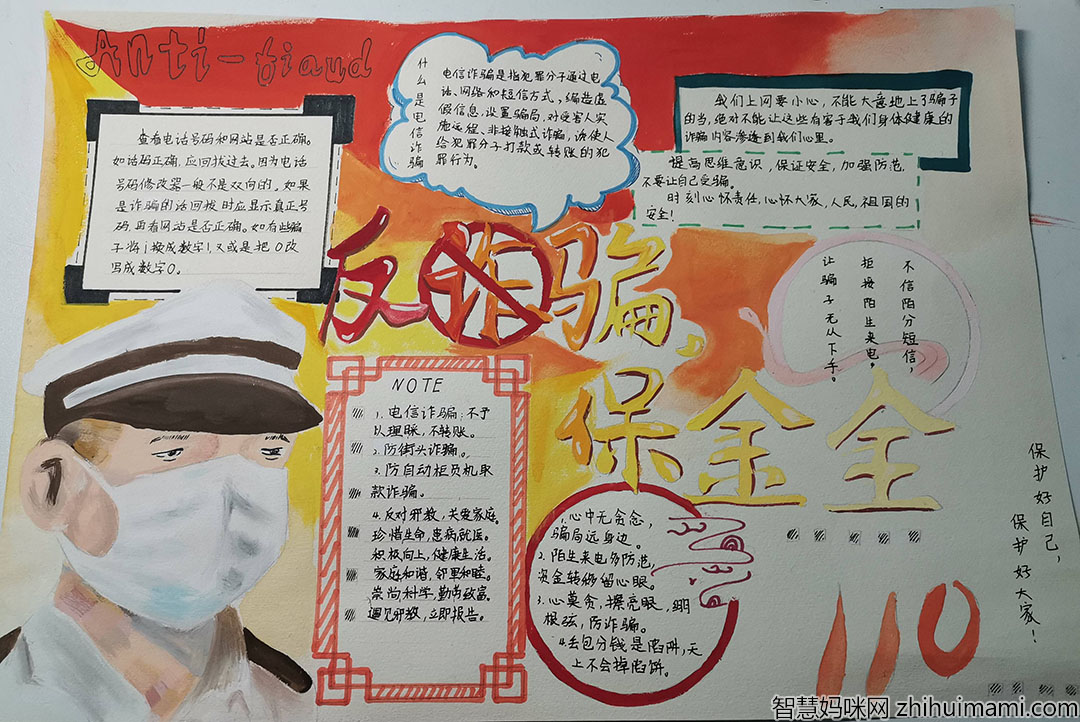 Anti-fiaud
查看电话号码和网站是否正确。
如话码正确，应回拨过去。因为电话
号码修改器一般不是双向的。如果
是诈骗的话回拨时应显示真正号
码，再看网站是否正确。如有些骗
子将i换成数字1，又或是把O改
写成数字0。
什么是电信诈骗
电信诈骗是指犯罪分子通过电
话、网络和短信方式，编造虚
假信息，设置骗局，对受害人实
施远程、非接触式诈骗，诱使人
给犯罪分子打款或转账的犯
罪行为。
我们上网要小心，不能大意地上了骗子
的当，绝对不能让这些有害于我们身体健康的
诈骗内容渗透到我们心里。
提高思维意识，保证安全，加强防范，
不要让自己受骗。
时刻心怀责任，心怀大家，人民，祖国的
安全！
反诈骗，
保金全
不信陌分短信，
拒接陌生来电，
让骗子无从下手。
NOTE
1.电信诈骗：不予
以理睬，不转账。
2.防街头诈骗。
3.防自动柜员机取
款诈骗。
4.反对邪教，关爱家庭。
珍惜生命，患病就医。
积极向上，健康生活。
家庭和谐，邻里和睦。
崇尚科学，勤劳致富。
遇见邪教，立即报告。
1.心中无贪念，
骗局远身边。
2.陌生来电多防范，
资金转移留心眼。
3.心莫贪，擦亮眼，绷
根弦，防诈骗。
4.丢包分钱是陷阱，天
上不会掉馅饼。
保护好自己，
保护好大家！
110
智慧妈咪网 zhihuimami.com